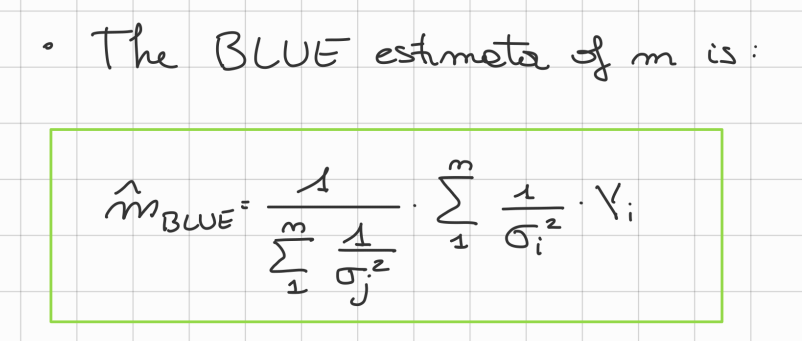 • The BLUE estimator of m is:
m̂_BLUE = 1 / (∑_1^m 1/σ_j²) · ∑_1^m 1/σ_i² · Y_i